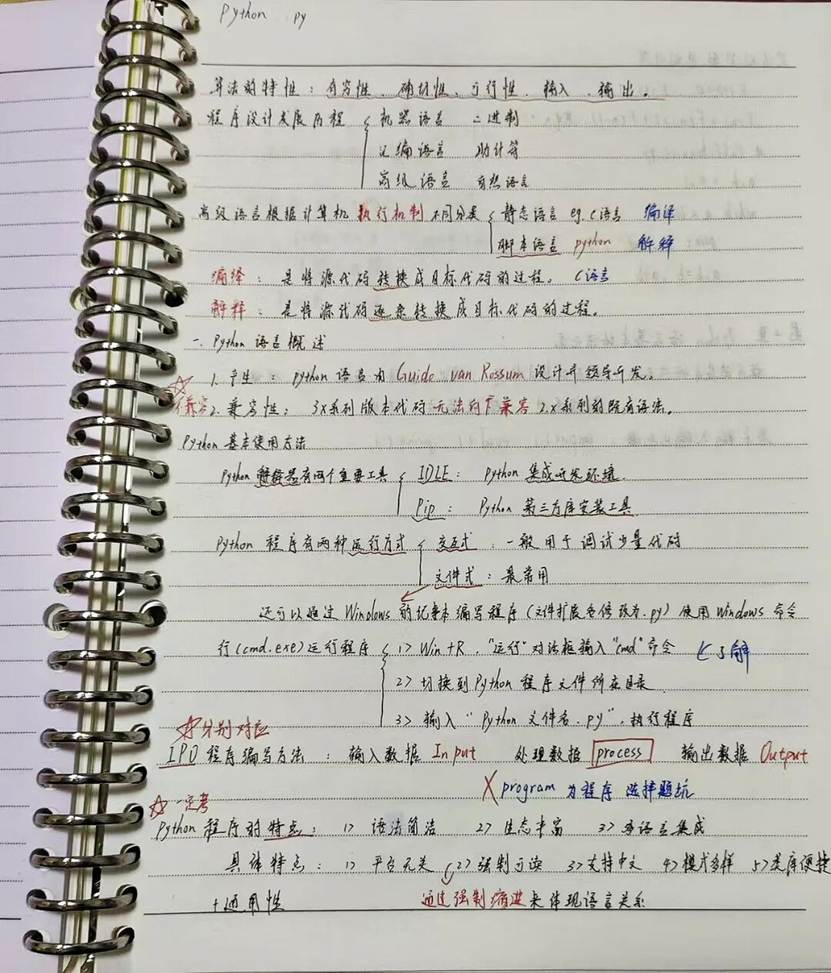 Python py
算法的特性：有穷性、确切性、可行性、输入、输出。
程序设计发展历程 机器语言 二进制
汇编语言 助计符
高级语言 自然语言
高级语言根据计算机执行机制不同分类 静态语言 eg. C语言 编译
脚本语言 python 解释
编绎：是将源代码转换成目标代码的过程。 C语言
解释：是将源代码逐条转换成目标代码的过程。
一. Python 语言概述
1. 产生：python 语言由 Guido van Rossum 设计并领导开发。
2. 兼容性：3.x系列版本代码无法向下兼容 2.x系列的既有语法。
Python 基本使用方法
Python 解释器有两个重要工具 IDLE：Python 集成开发环境.
Pip：Python 第三方库安装工具
Python 程序有两种运行方式 交互式：一般用于调试少量代码
文件式：最常用
还可以通过 Windows 的记事本编写程序（文件扩展名修改为.py）使用 Windows 命令
行（cmd.exe）运行程序 1> Win+R，"运行"对话框输入"cmd"命令 了解
2> 切换到 Python 程序文件所在目录
3> 输入"Python 文件名.py"，执行程序
☆分别对应
IPO 程序编写方法：输入数据 Input 处理数据 process 输出数据 Output
X program 为程序 选择题坑
☆一定考
Python 程序的特点：1> 语法简洁 2> 生态丰富 3> 多语言集成
具体特点：1> 平台无关 2> 强制可读 3> 支持中文 4> 模式多样 5> 类库便捷
+通用性 通过强制缩进来体现语言关系